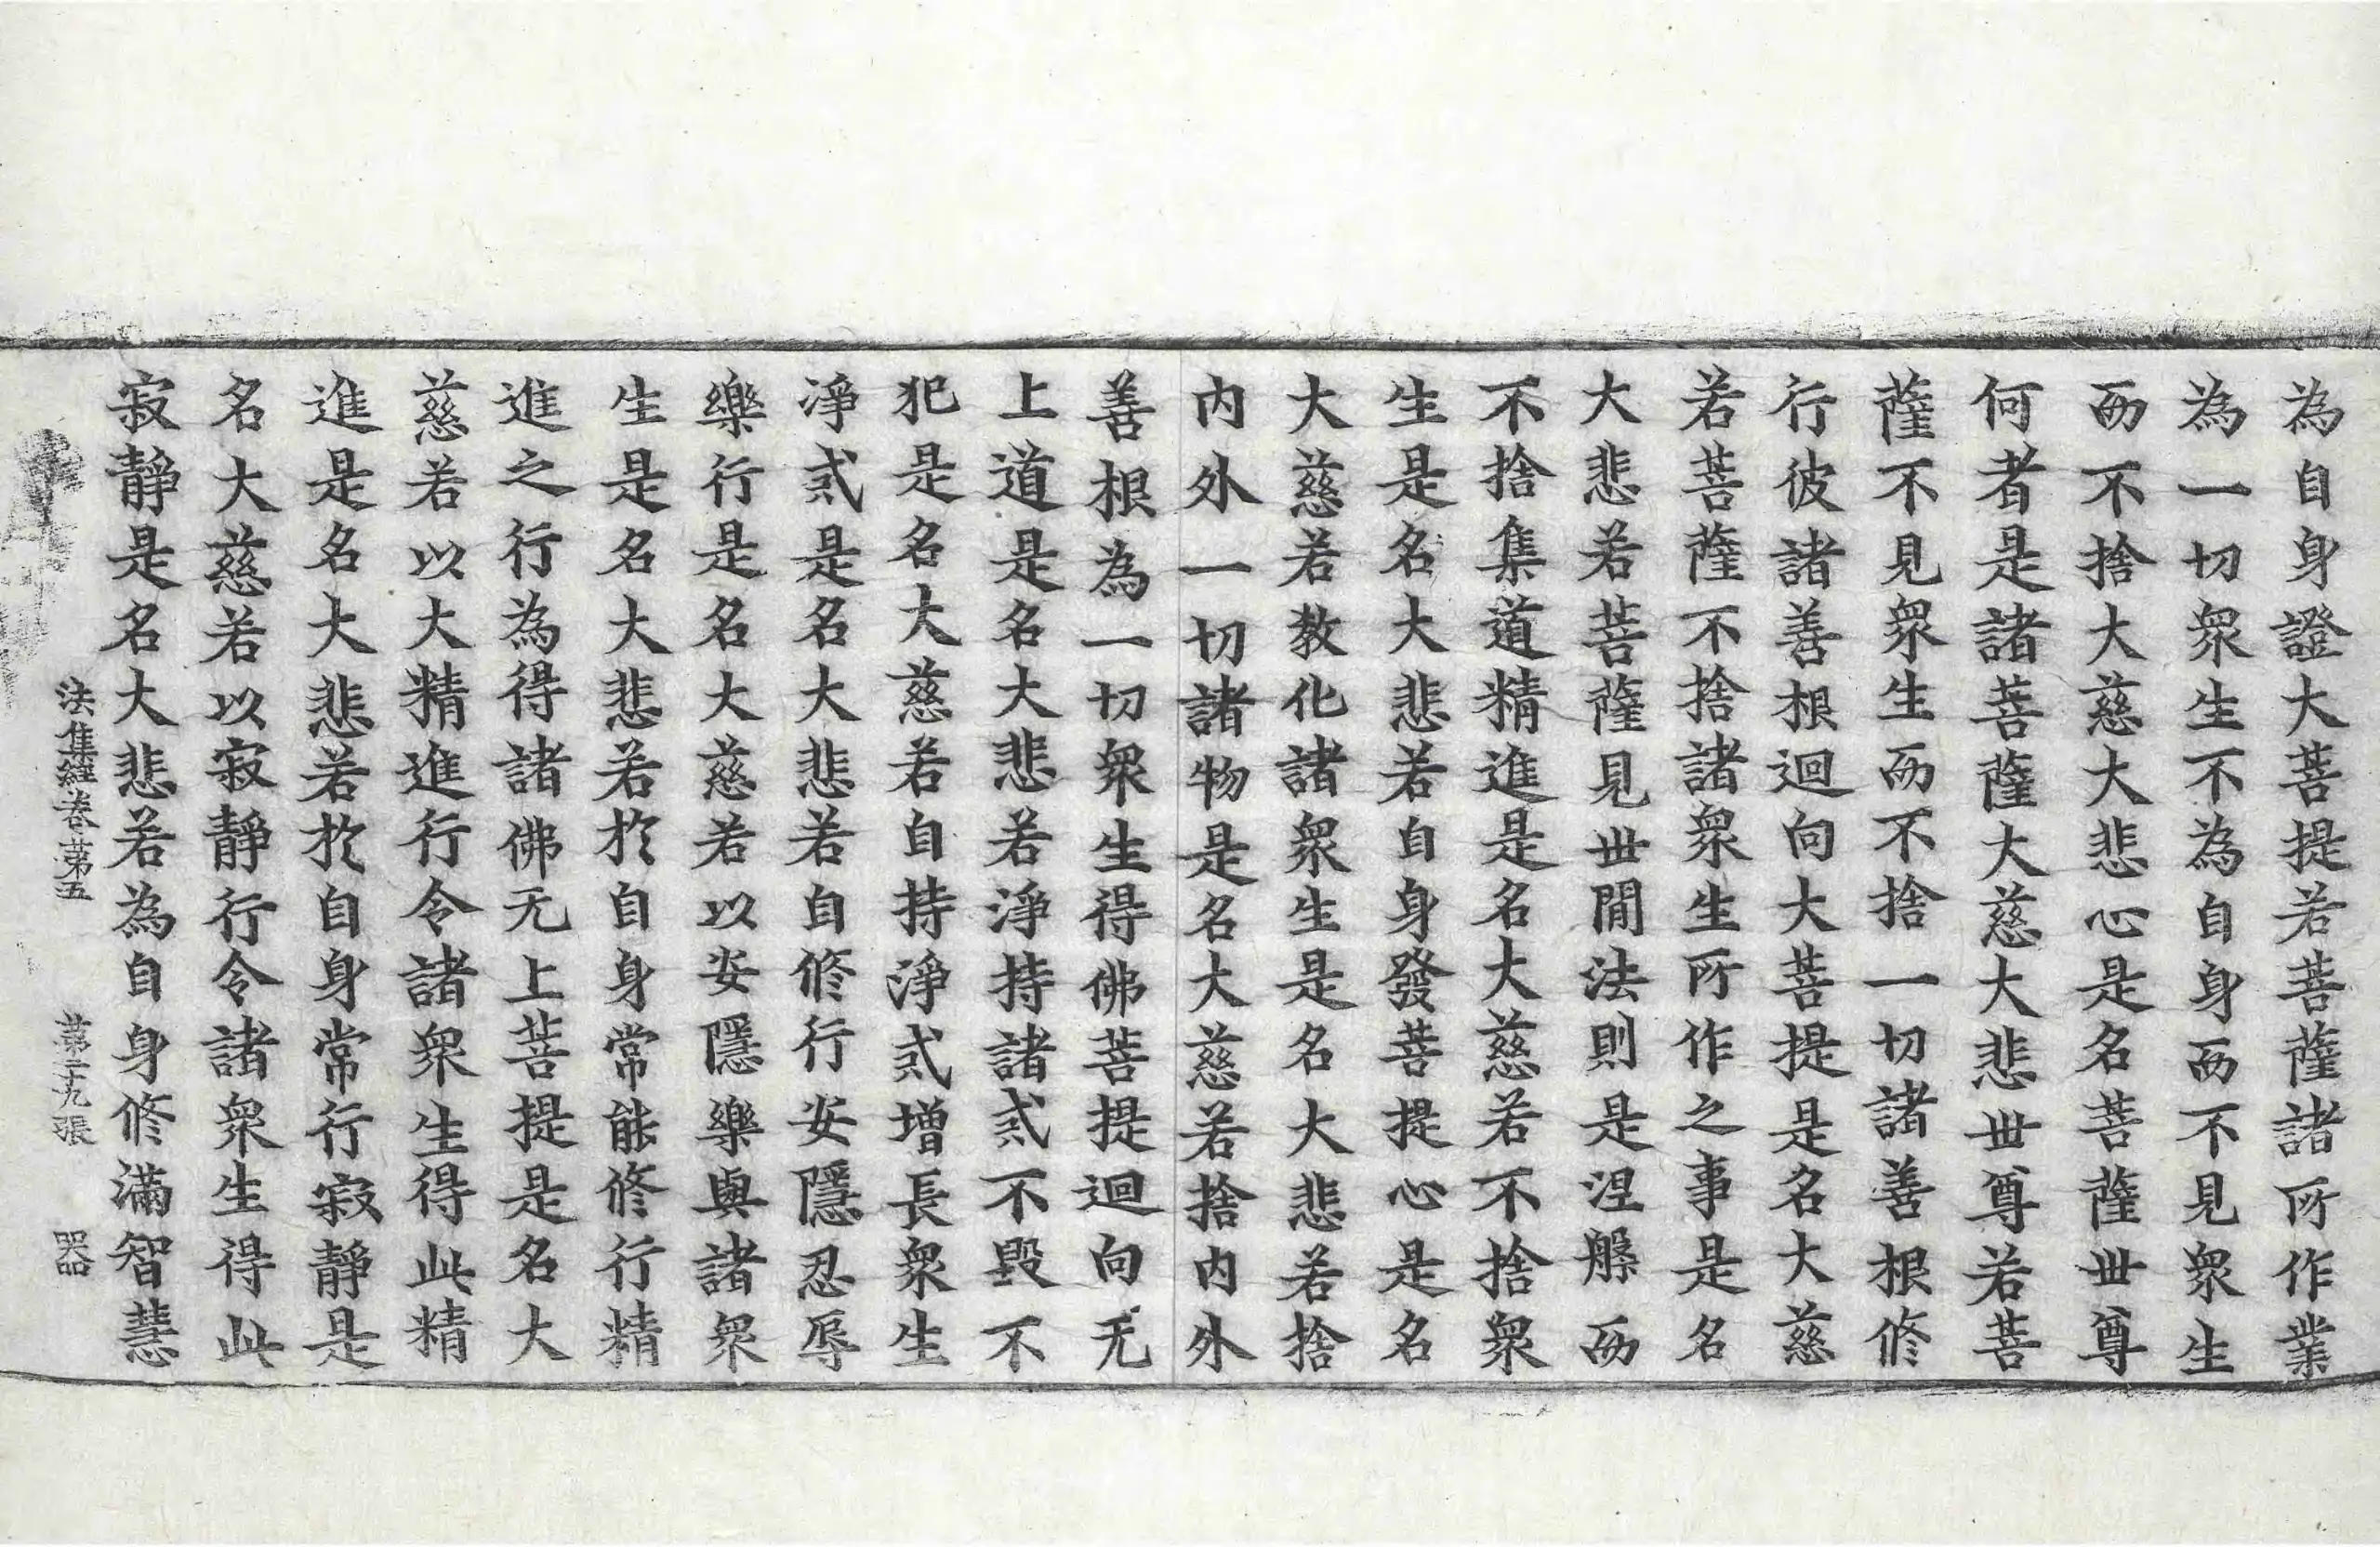 為自身證大菩提若菩薩諸所作業
為一切眾生不為自身而不見眾生
而不捨大慈大悲心是名菩薩世尊
何者是諸菩薩大慈大悲世尊若菩
薩不見眾生而不捨一切諸善根修
行彼諸善根迴向大菩提是名大慈
若菩薩不捨諸眾生所作之事是名
大悲若菩薩見世閒法則是涅槃而
不捨集道精進是名大慈若不捨眾
生是名大悲若自身發菩提心是名
大慈若教化諸眾生是名大悲若捨
内外一切諸物是名大慈若捨内外
善根為一切眾生得佛菩提迴向无
上道是名大悲若淨持諸戒不毀不
犯是名大慈若自持淨戒增長眾生
淨戒是名大悲若自修行安隱忍辱
樂行是名大慈若以安隱樂與諸眾
生是名大悲若於自身常能修行精
進之行為得諸佛无上菩提是名大
慈若以大精進行令諸眾生得此精
進是名大悲若於自身常行寂靜是
名大慈若以寂靜行令諸眾生得此
寂靜是名大悲若為自身修滿智慧
法集經卷第五　第二十九張　器